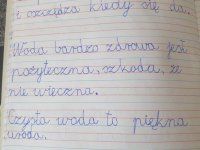 i oszczędza kiedy się da.
Woda bardzo zdrowa jest
pożyteczna, szkoda, że
nie wieczna.
Czysta woda to piękna
uroda.